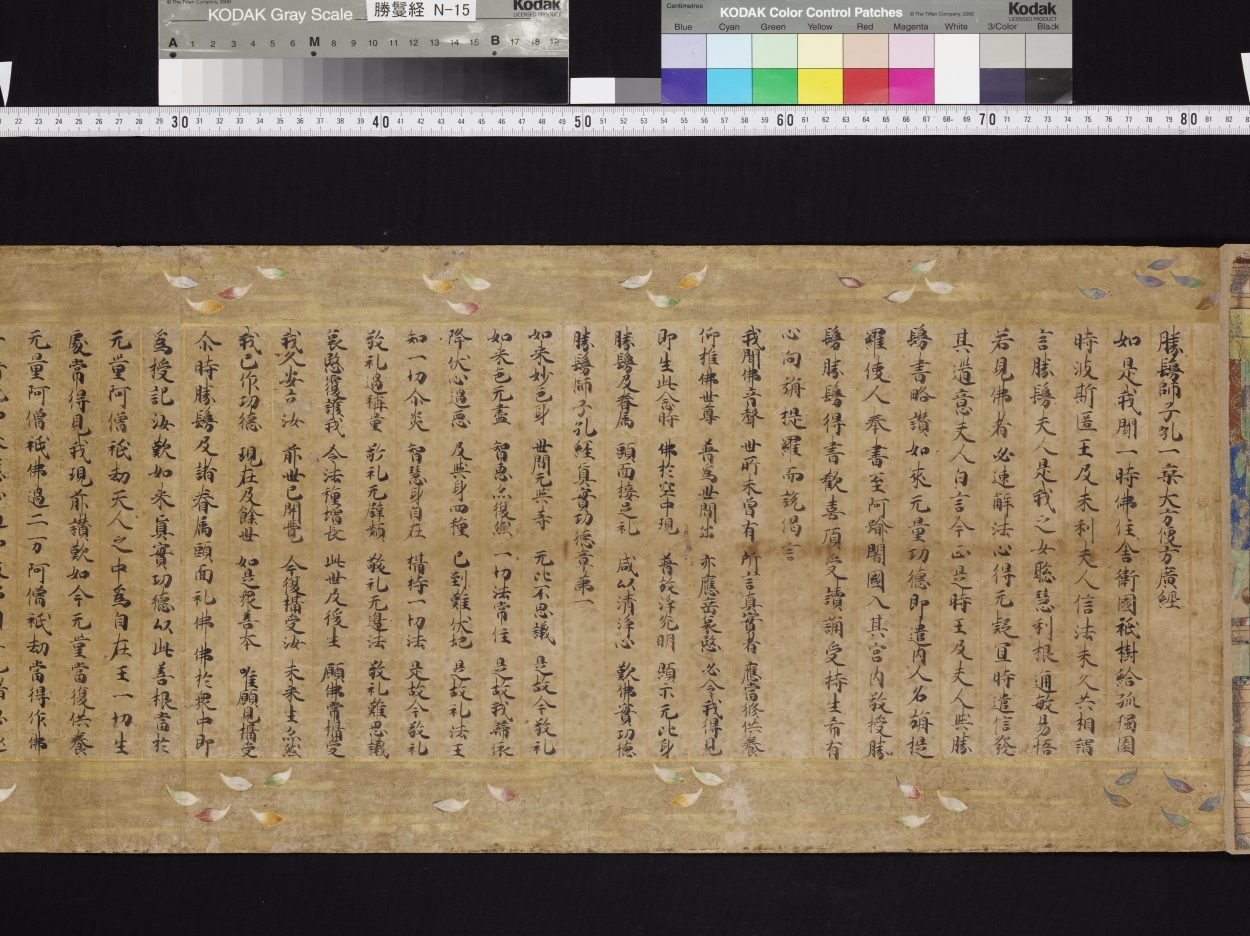 KODAK Gray Scale
勝鬘経 N-15
Kodak
LICENSED PRODUCT
A 1 2 3 4 5 6 M 8 9 10 11 12 13 14 15 B 17 18 19
Centimetres
KODAK Color Control Patches
© The Tiffen Company, 2000
Kodak
LICENSED PRODUCT
Blue Cyan Green Yellow Red Magenta White 3/Color Black
勝鬘師子吼一乗大方便方廣經
如是我聞一時佛住舍衛國祇樹給孤獨園
時波斯匿王及末利夫人信法未久共相謂
言勝鬘夫人是我之女聡慧利根通敏易悟
若見佛者必速解法心得无疑冝時遣信發
其道意夫人白言今正是時王及夫人與勝
鬘書略讃如来无量功德即遣内人名旃提
羅使人奉書至阿踰闍國入其宮内敬授勝
鬘勝鬘得書歡喜頂受讀誦受持生希有
心向旃提羅而説偈言
我聞佛音聲 世所未曾有 所言真實者 應當脩供養
仰惟佛世尊 普為世間出 亦應垂哀愍 必令我得見
即生此念時 佛於空中現 普放淨光明 顯示无比身
勝鬘及眷属 頭面接足礼 咸以清淨心 歎佛實功德
勝鬘師子吼經真實功德章第一
如来妙色身 世間无與等 无比不思議 是故今敬礼
如来色无盡 智惠亦復然 一切法常住 是故我歸依
降伏心過惡 及與身四種 已到難伏地 是故礼法王
知一切尒炎 智慧身自在 攝持一切法 是故今敬礼
敬礼過稱量 敬礼无譬類 敬礼无邊法 敬礼難思議
哀愍覆護我 令法種增長 此世及後生 願佛常攝受
我久安立汝 前世已開覺 今復攝受汝 未来生亦然
我已作功德 現在及餘世 如是衆善本 唯願見攝受
尒時勝鬘及諸眷属頭面礼佛佛於衆中即
為授記汝歎如来真實功德以此善根當於
无量阿僧祇劫天人之中為自在王一切生
處常得見我現前讃歎如今无異當復供養
无量阿僧祇佛過二万阿僧祇劫當得作佛